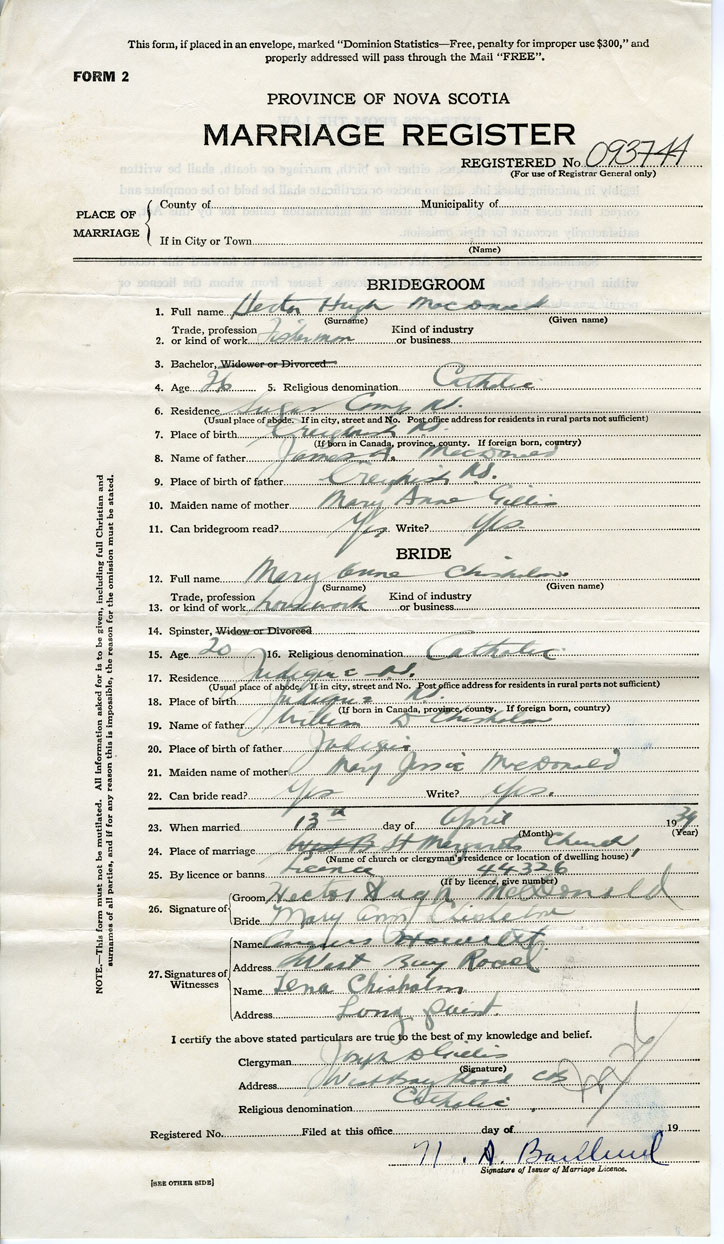 This form, if placed in an envelope, marked "Dominion Statistics—Free, penalty for improper use $300," and
properly addressed will pass through the Mail "FREE".
FORM 2
PROVINCE OF NOVA SCOTIA
MARRIAGE REGISTER
REGISTERED No. 093744
(For use of Registrar General only)
PLACE OF MARRIAGE
County of Municipality of
If in City or Town
(Name)
BRIDEGROOM
1. Full name Hector Hugh MacDonald
(Surname) (Given name)
Trade, profession Kind of industry
2. or kind of work Fisherman or business
3. Bachelor, Widower or Divorced
4. Age 26 5. Religious denomination Catholic
6. Residence Sugar Camp N.S.
(Usual place of abode. If in city, street and No. Post office address for residents in rural parts not sufficient)
7. Place of birth Creignish N.S.
(If born in Canada, province, county. If foreign born, country)
8. Name of father James A. MacDonald
9. Place of birth of father Creignish N.S.
10. Maiden name of mother Mary Anne Gillis
11. Can bridegroom read? Yes Write? Yes.
BRIDE
12. Full name Mary Anne Chisholm
(Surname) (Given name)
Trade, profession Kind of industry
13. or kind of work housework or business
14. Spinster, Widow or Divorced
15. Age 20 16. Religious denomination Catholic
17. Residence Judique N.S.
(Usual place of abode. If in city, street and No. Post office address for residents in rural parts not sufficient)
18. Place of birth Judique N.S.
(If born in Canada, province, county. If foreign born, country)
19. Name of father William D Chisholm
20. Place of birth of father Judique
21. Maiden name of mother Mary Jessie MacDonald
22. Can bride read? Yes Write? Yes.
23. When married 13th day of April 19
(Month) (Year)
24. Place of marriage West B St Margarets Church,
(Name of church or clergyman's residence or location of dwelling house)
25. By licence or banns Licence 44326
(If by licence, give number)
26. Signature of
Groom Hector Hugh McDonald
Bride Mary Ann Chisholm
27. Signatures of Witnesses
Name Angus
Address West Bay Road
Name Lena Chisholm
Address Long Point.
I certify the above stated particulars are true to the best of my knowledge and belief.
Clergyman Joseph D Gillis
(Signature)
Address West Bay Road CB
Religious denomination Catholic
Registered No. Filed at this office day of 19
Signature of Issuer of Marriage Licence.
[SEE OTHER SIDE]
NOTE.—This form must not be mutilated. All information asked for is to be given, including full Christian and
surnames of all parties, and if for any reason this is impossible, the reason for the omission must be stated.